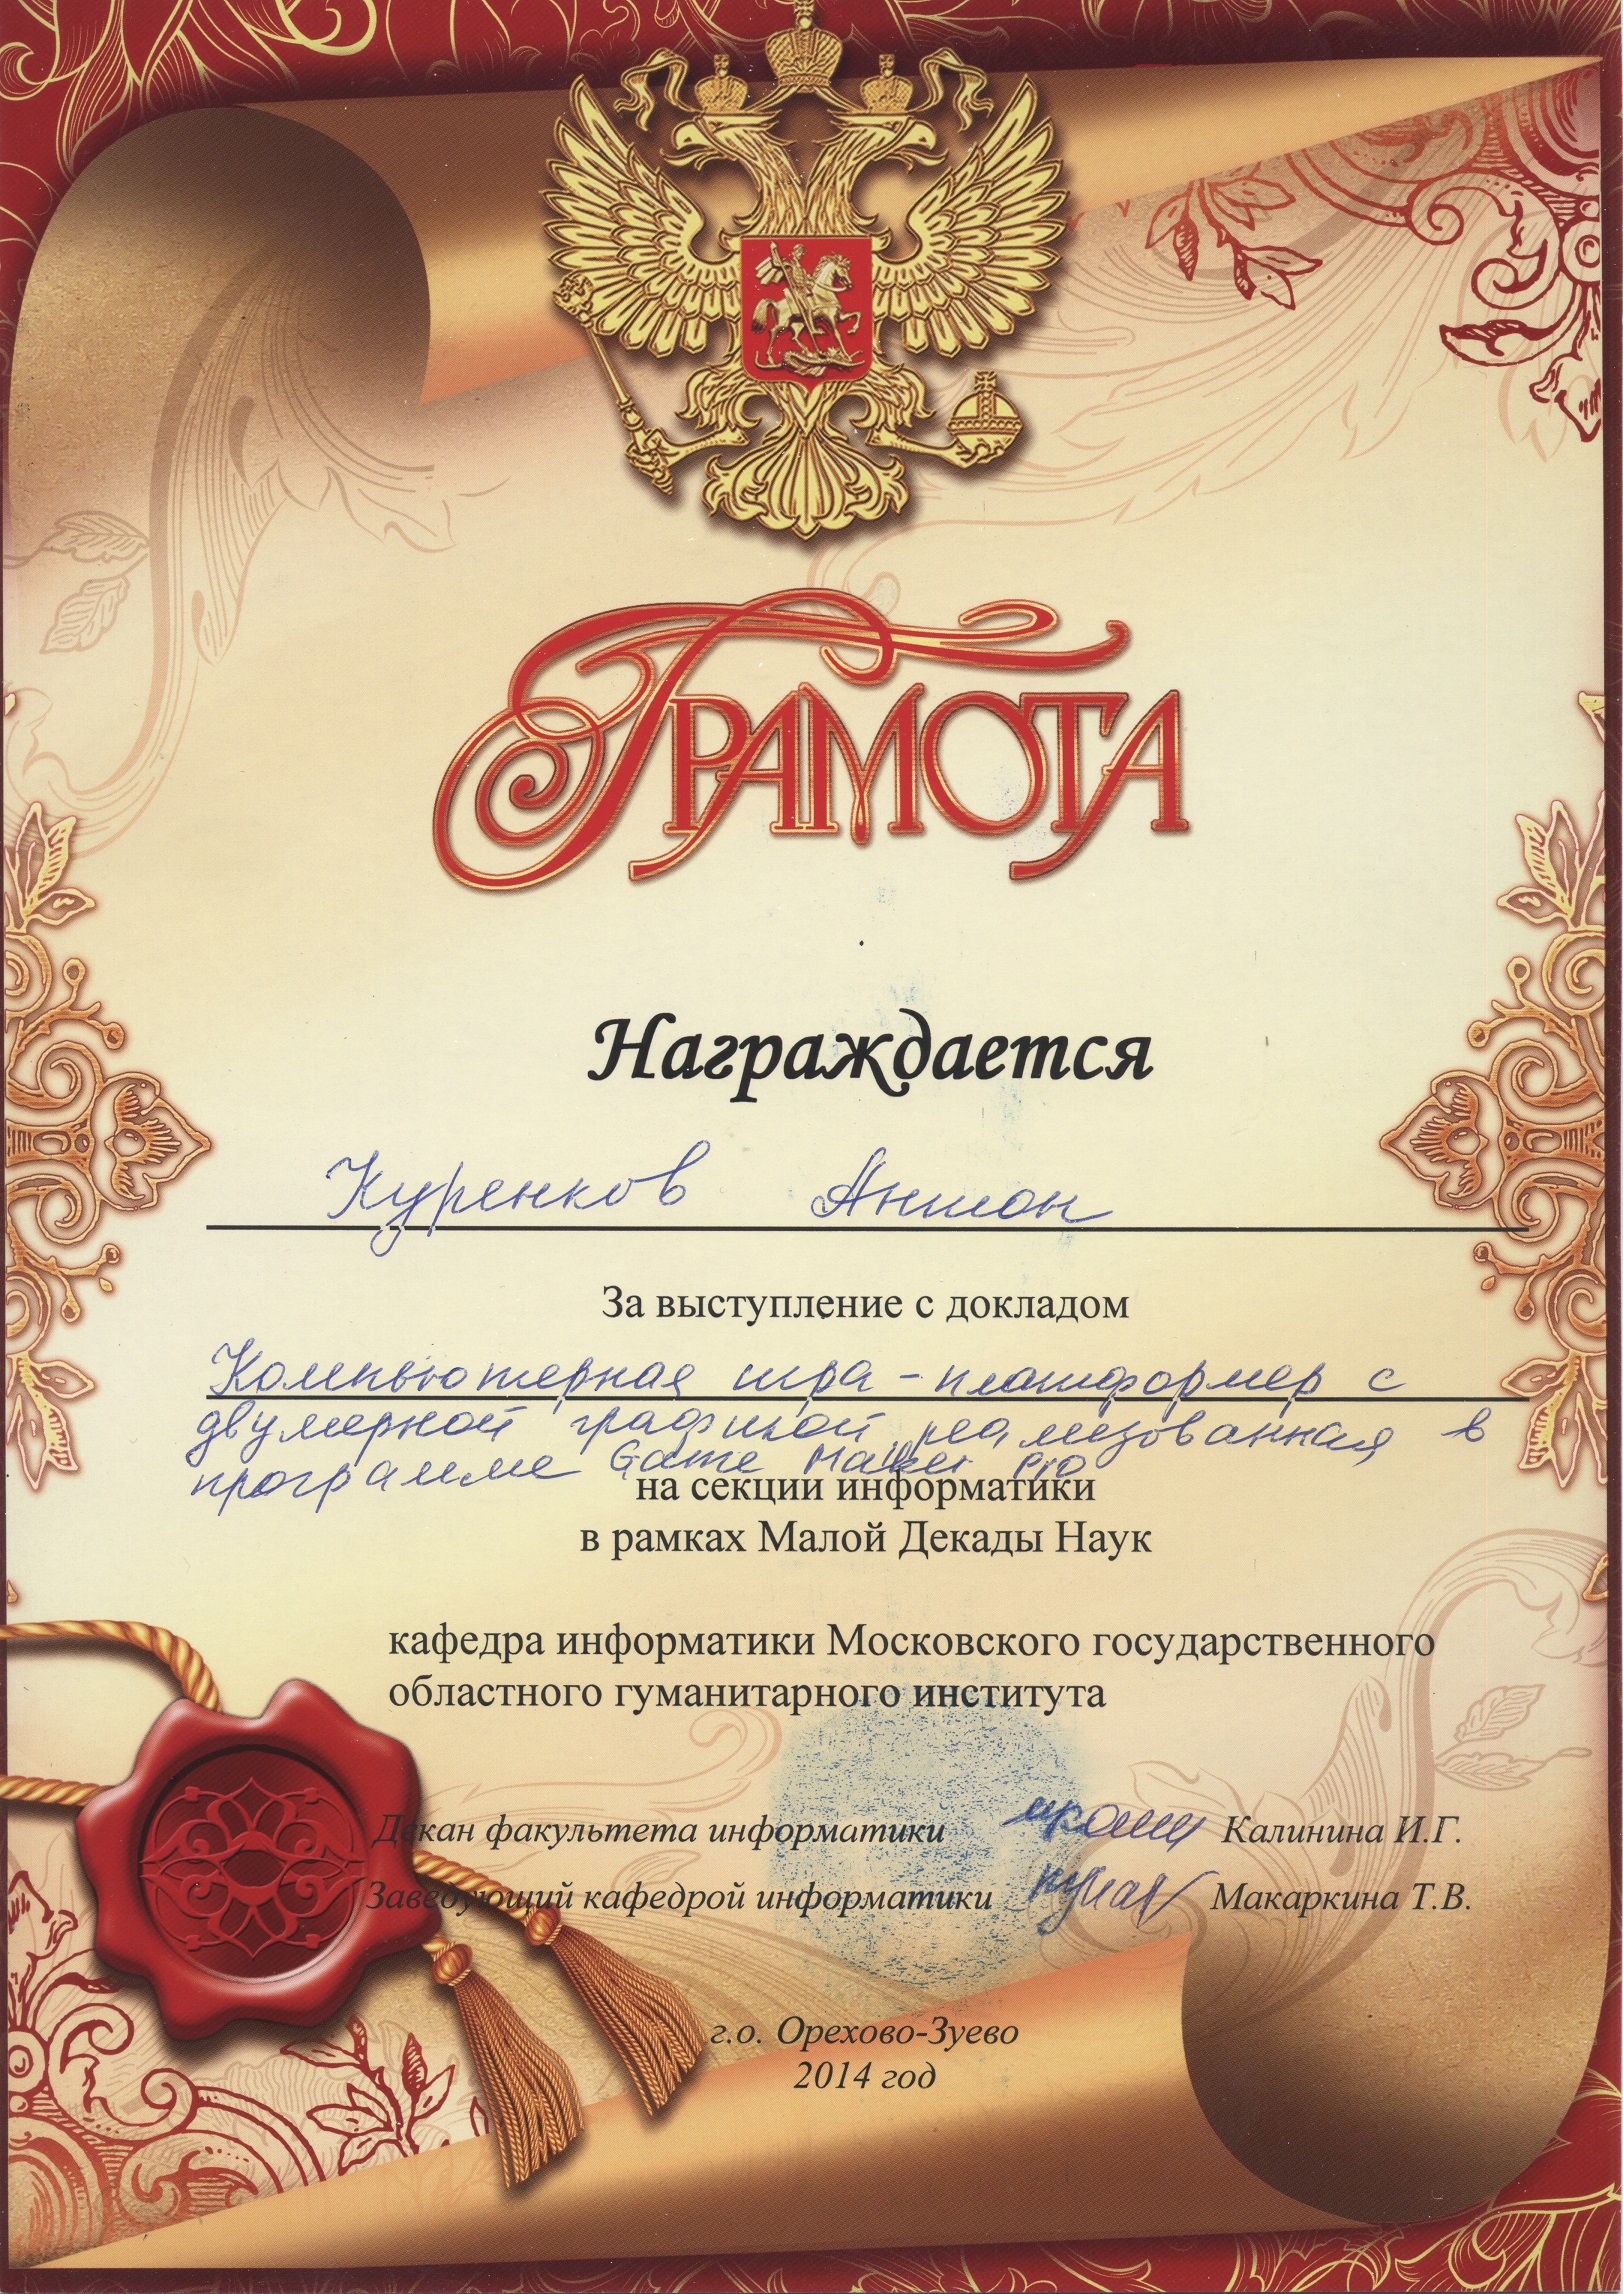 Грамота
Награждается
Куренков Антон
За выступление с докладом
Компьютерная игра-платформер с
двумерной графикой реализованная в
программе Game Maker Pro
на секции информатики
в рамках Малой Декады Наук
кафедра информатики Московского государственного
областного гуманитарного института
Декан факультета информатики Калинина И.Г.
Заведующий кафедрой информатики Макаркина Т.В.
г.о. Орехово-Зуево
2014 год